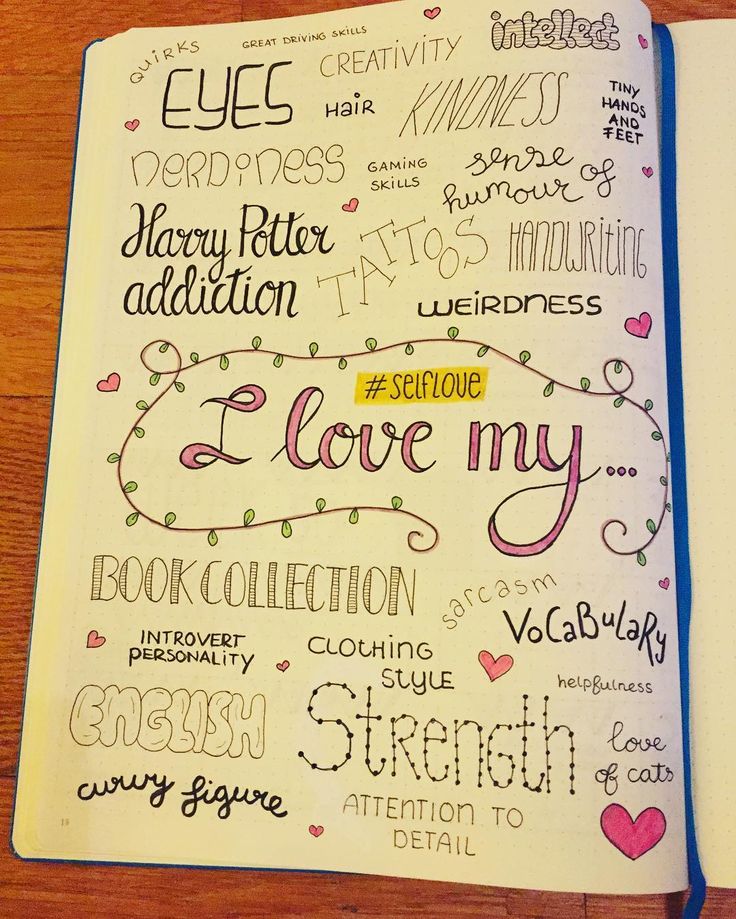 QUIRKS
GREAT DRIVING SKILLS
CREATIVITY
intellect
EYES
HAIR
KINDNESS
TINY
HANDS
AND
FEET
NERDiNESS
GAMING
SKILLS
sense
of
humour
Harry Potter
addiction
TATTOOS
HANDWRiting
WEIRDNESS
#SELFLOVE
I love my...
BOOK COLLECTION
sarcasm
VoCaBulaRy
INTROVERT
PERSONALITY
CLOTHING
STYLE
helpfulness
ENGLISH
Strength
love
of cats
curvy figure
ATTENTION TO
DETAIL